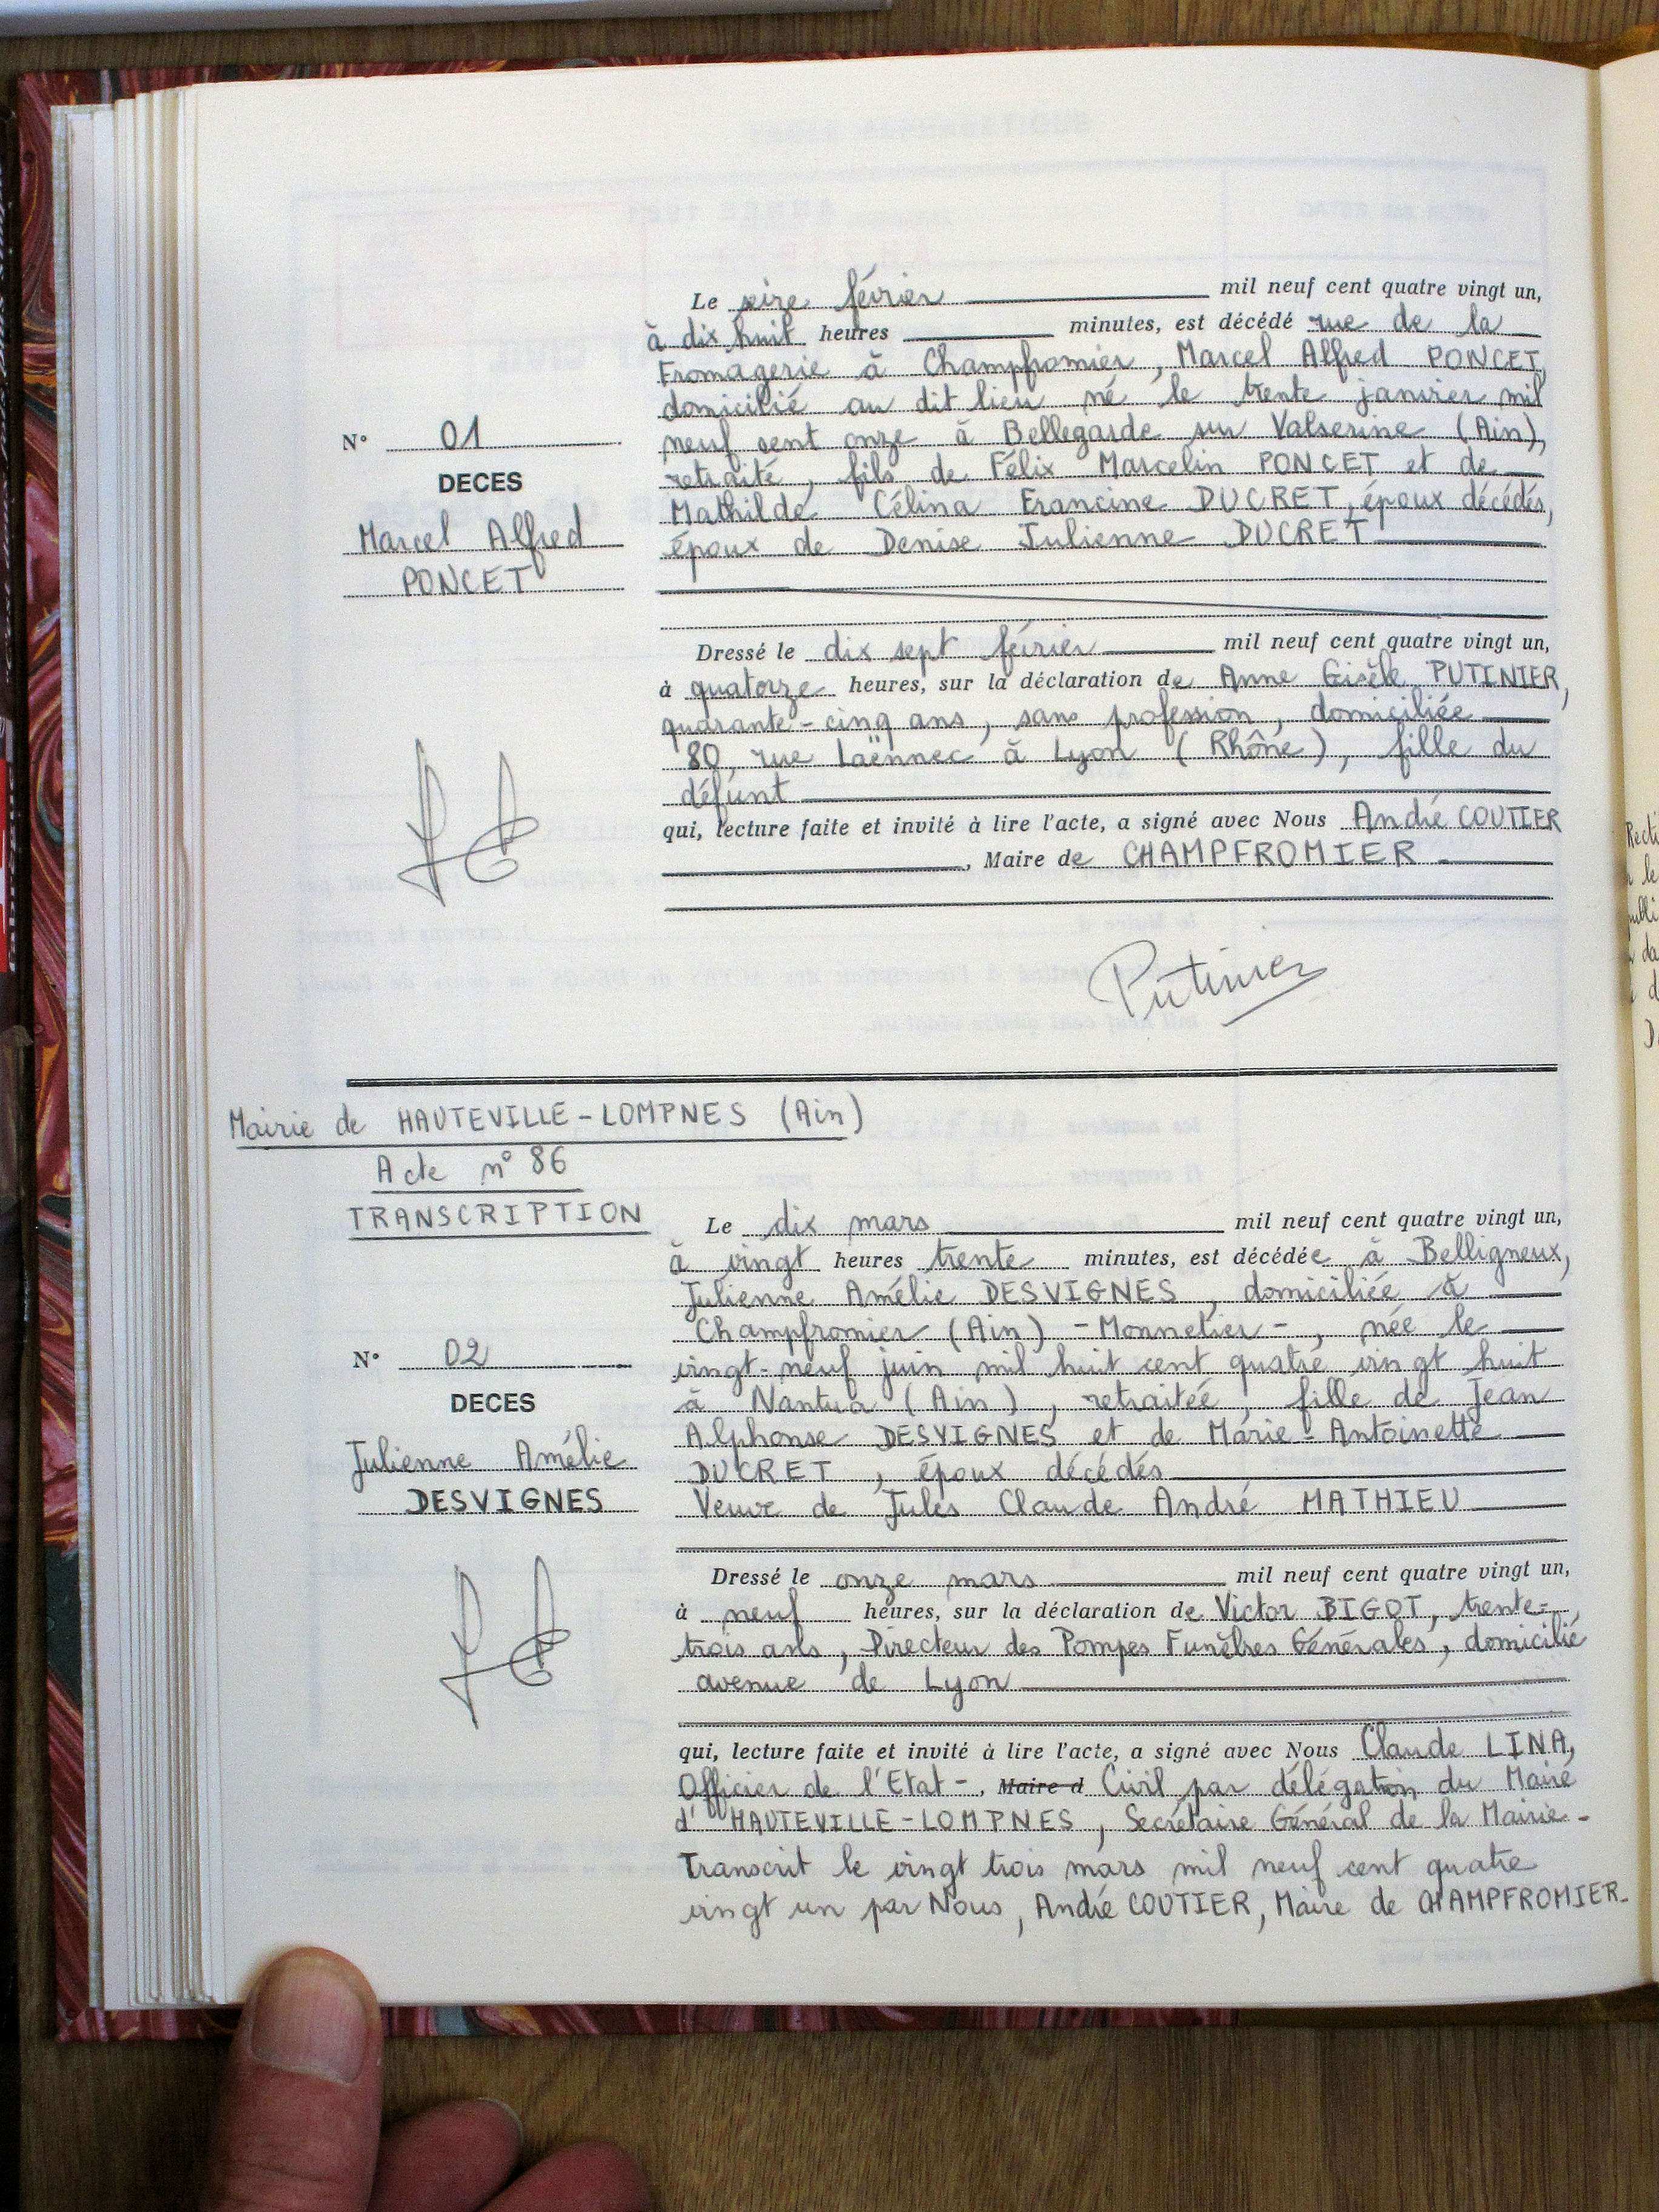 Le seize février mil neuf cent quatre vingt un,
à dix huit heures minutes, est décédé rue de la
Fromagerie à Champfromier, Marcel Alfred PONCET,
domicilié au dit lieu né le trente janvier mil
N° 01
neuf cent onze à Bellegarde sur Valserine (Ain),
DECES
retraité, fils de Félix Marcelin PONCET et de
Marcel Alfred
Mathilde Célina Francine DUCRET, époux décédés,
PONCET
époux de Denise Julienne DUCRET
Dressé le dix sept février mil neuf cent quatre vingt un,
à quatorze heures, sur la déclaration de Anne Gisèle PUTINIER,
quarante-cinq ans, sans profession, domiciliée
80, rue Laënnec à Lyon (Rhône), fille du
défunt
qui, lecture faite et invité à lire l'acte, a signé avec Nous André COUTIER
, Maire de CHAMPFROMIER.
Putinier
Mairie de HAUTEVILLE-LOMPNES (Ain)
Acte n° 86
TRANSCRIPTION
Le dix mars mil neuf cent quatre vingt un,
à vingt heures trente minutes, est décédée à Belligneux,
Julienne Amélie DESVIGNES, domiciliée à
Champfromier (Ain) - Monnetier -, née le
N° 02
vingt-neuf juin mil huit cent quatre vingt huit
DECES
à Nantua (Ain), retraitée, fille de Jean
Julienne Amélie
Alphonse DESVIGNES et de Marie-Antoinette
DESVIGNES
DUCRET, époux décédés
Veuve de Jules Claude André MATHIEU
Dressé le onze mars mil neuf cent quatre vingt un,
à neuf heures, sur la déclaration de Victor BIGOT, trente-
trois ans, Directeur des Pompes Funèbres Générales, domicilié
avenue de Lyon
qui, lecture faite et invité à lire l'acte, a signé avec Nous Claude LINA,
Officier de l'Etat-, Maire d Civil par délégation du Maire
d'HAUTEVILLE-LOMPNES, Secrétaire Général de la Mairie-
Transcrit le vingt trois mars mil neuf cent quatre
vingt un par Nous, André COUTIER, Maire de CHAMPFROMIER-